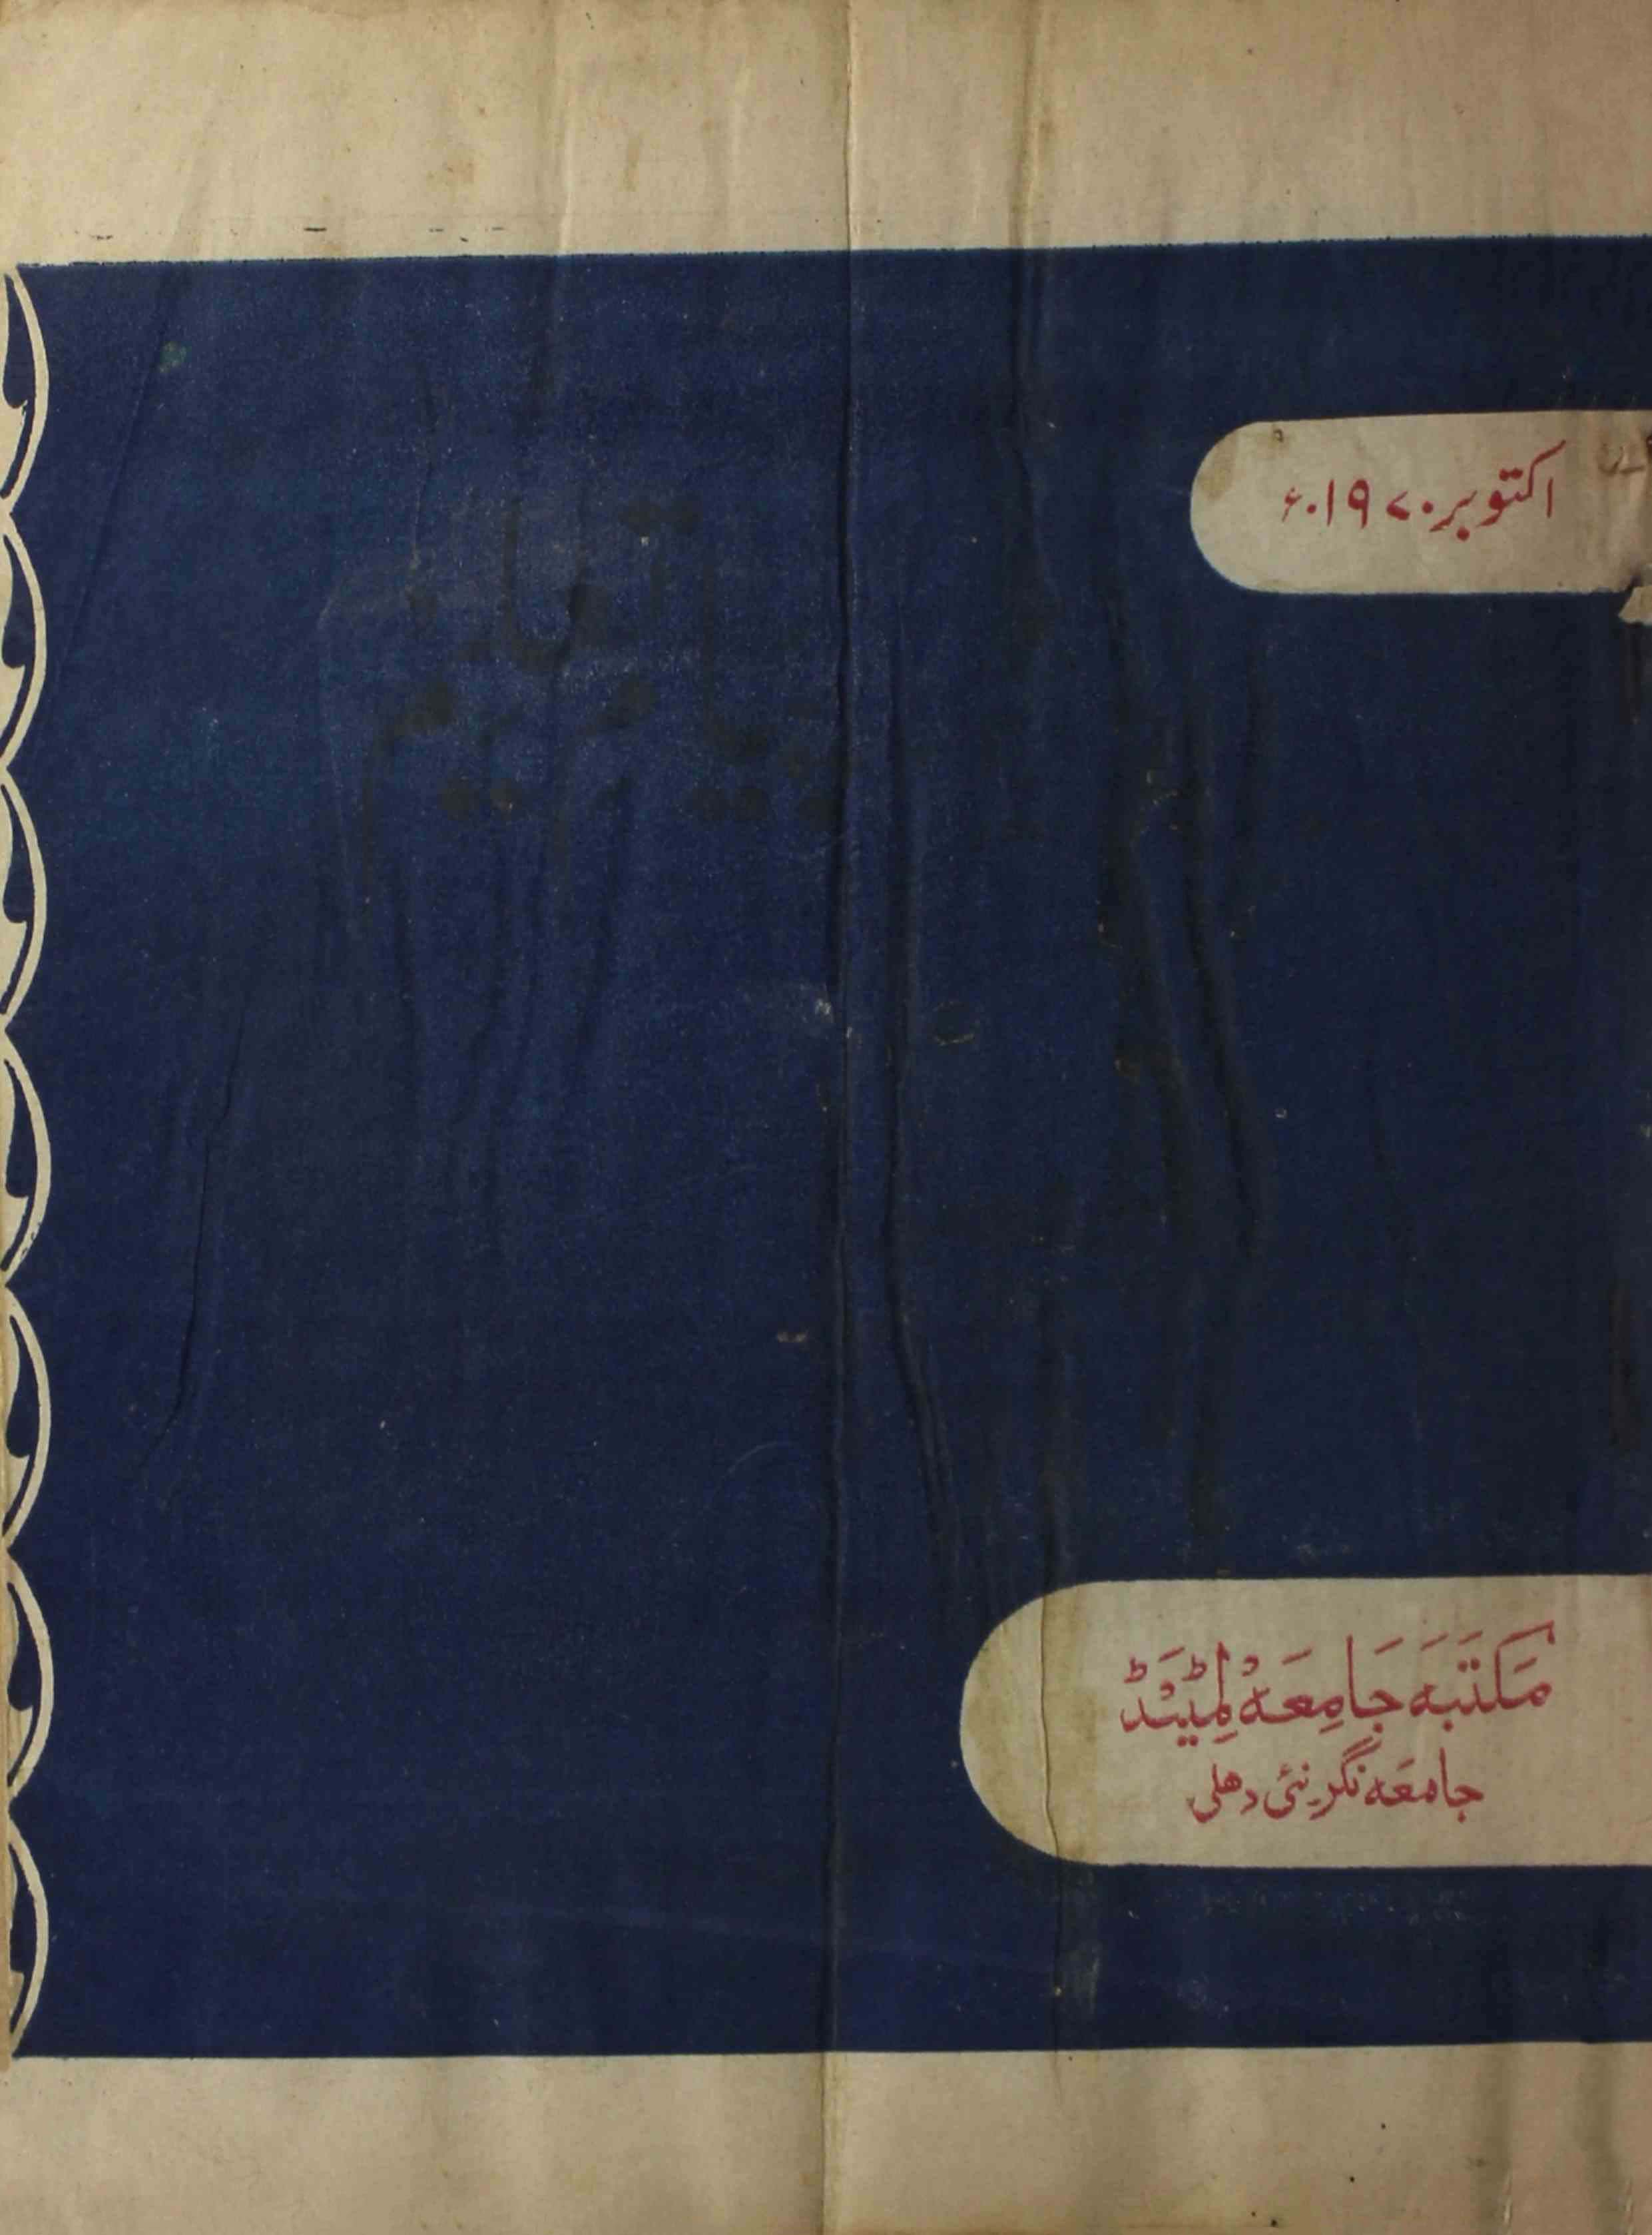 اکتوبر ۱۹۷۰ء
مکتبہ جامعہ لمیٹیڈ
جامعہ نگر نئی دھلی